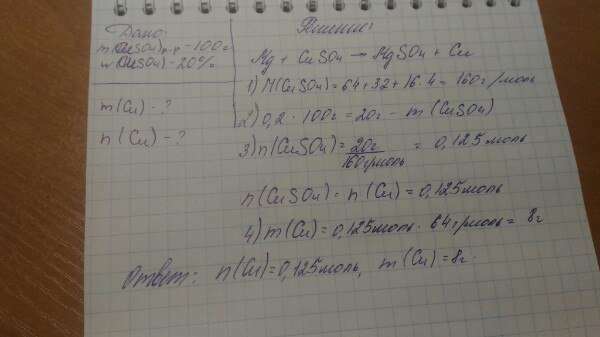 Дано:
m(CuSO4)р-р - 100г
w(CuSO4) - 20%
m(Cu) - ?
n(Cu) - ?
Решение:
Mg + CuSO4 → MgSO4 + Cu
1) M(CuSO4) = 64 + 32 + 16 · 4 = 160 г/моль
2) 0,2 · 100г = 20г - m(CuSO4)
3) n(CuSO4) = 20г / 160г/моль = 0,125 моль
n(CuSO4) = n(Cu) = 0,125 моль
4) m(Cu) = 0,125 моль · 64 г/моль = 8г
Ответ: n(Cu) = 0,125 моль, m(Cu) = 8г.